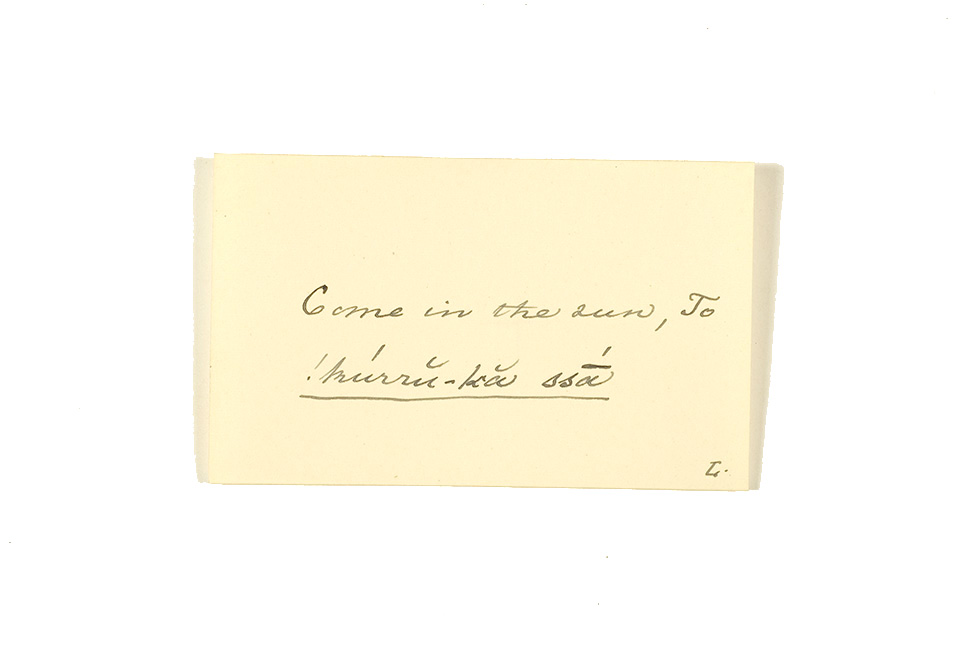 Come in the sun, To
!kúrrŭ-kă ssā́
L.